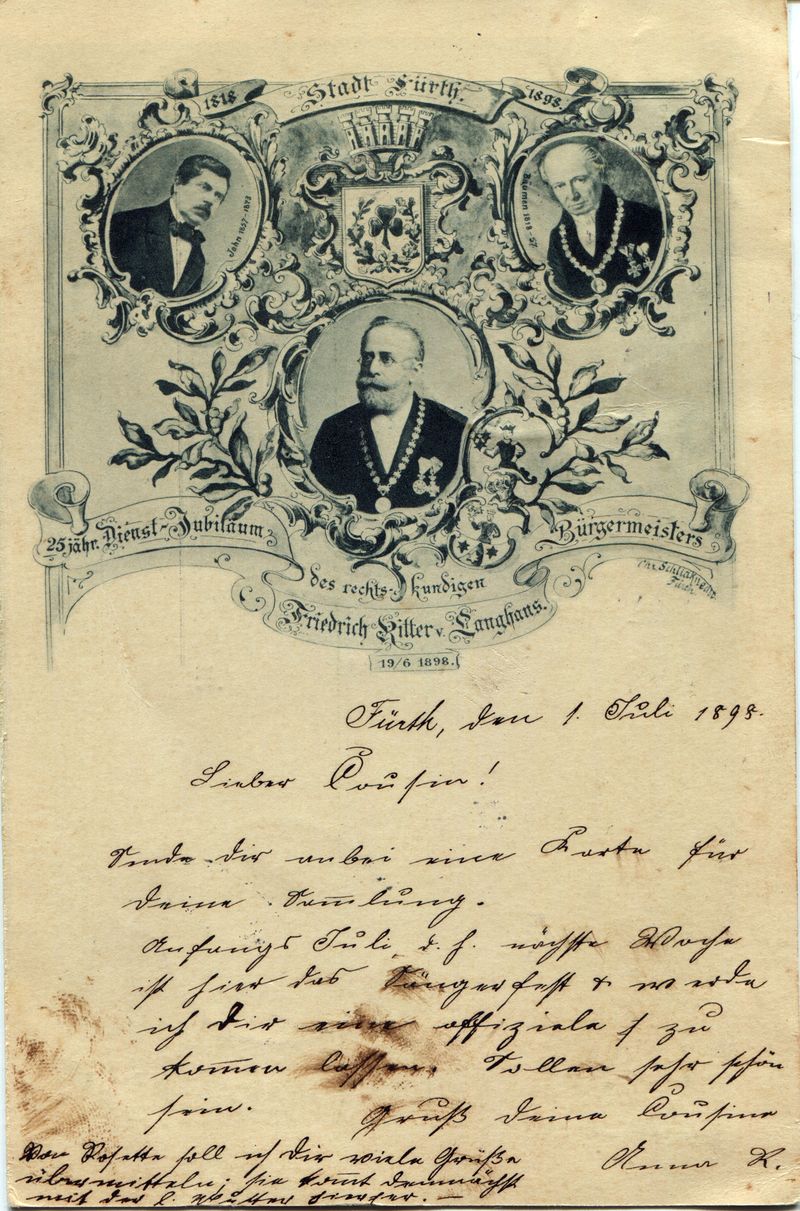 1818 Stadt Fürth. 1898.
John 1857-1873
Bäumen 1818-57
25jähr. Dienst-Jubiläum
des rechts-kundigen
Bürgermeisters
Friedrich Ritter v. Langhans.
19/6 1898.
Fürth
Fürth, den 1. Juli 1898.
Lieber Cousin!
Sende dir anbei eine Karte für
deine Sammlung.
Anfangs Juli d. h. nächste Woche
ist hier das Sängerfest & werde
ich Dir eine offiziele / zu
kommen lassen. Sollen sehr schön
sein.
Gruß deine Cousine
Anna R.
Von Rosette soll ich Dir viele Grüße
übermitteln; sie kommt demnächst
mit der l. Mutter hierher. —